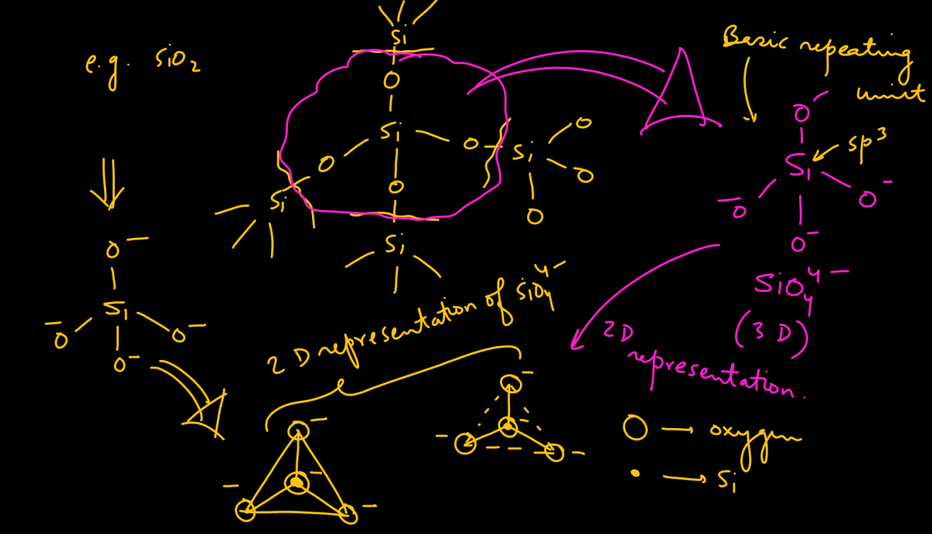 e.g. SiO2
Si
O
Si
O
O
O
Si
O
O
O
Si
Si
Basic repeating
unit
O-
Si
sp3
-O
O-
O-
SiO4 4-
(3D)
2D
representation.
O-
Si
-O
O-
O-
2D representation of SiO4 4-
-
-
-
-
-
-
-
-
O → oxygen
• → Si